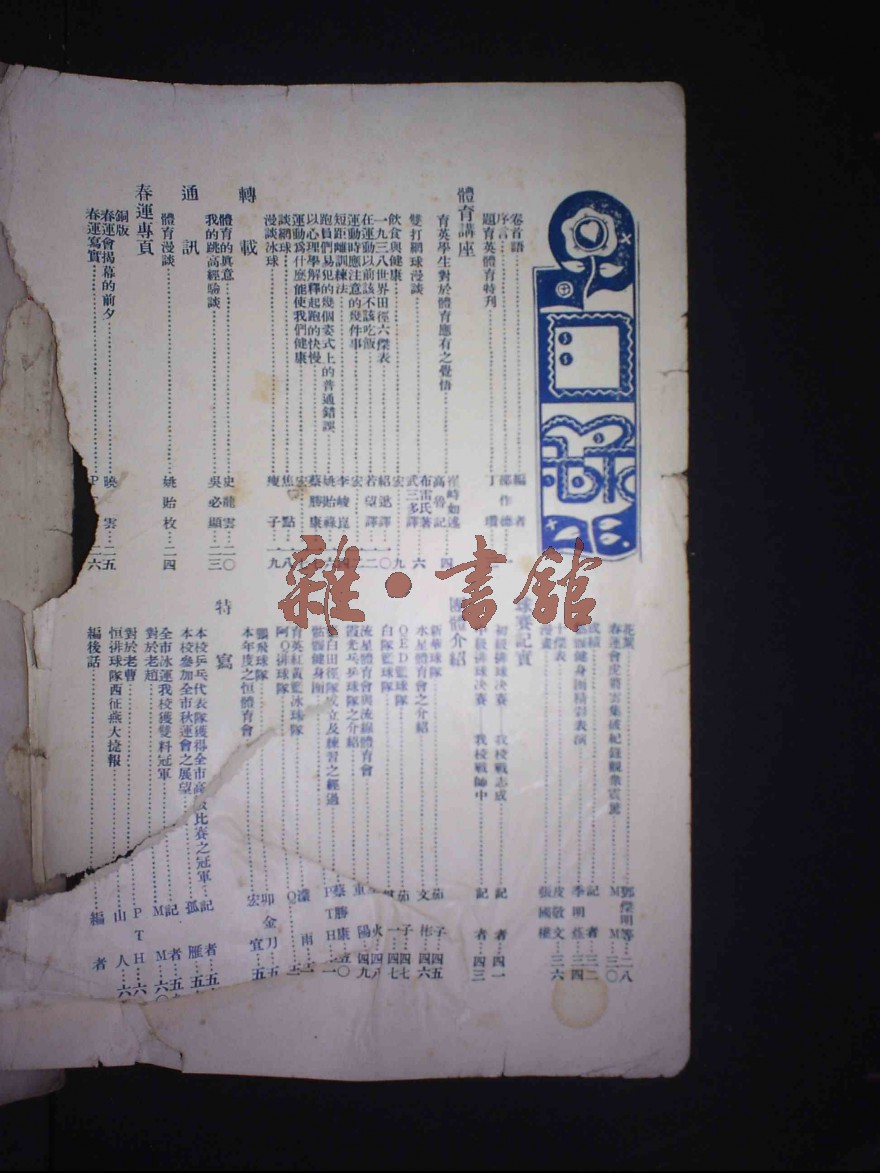 卷首語……編者
序言……邵作德 一
題育英體育特刊……丁瓚
體育講座
育英學生對於體育應有之覺悟……崔峙如述 高魯記 四
雙打網球漫談……布雷氏著 武三多譯 六
飲食與健康……宏 九
一九三八世界田徑六傑表……紹遜譯 一〇
在運動以前該不該吃飯……若望譯 一二
運動時應注意的幾件事……宏
短距離訓練法……李峻崑
跑員們易犯的幾個姿式上的普通錯誤……姚貽祿
以心理學解釋起跑的快慢……蔡勝康
運動為什麼能使我們健康……宏
談網球……焦點 一八
漫談冰球……瘦子 一九
轉載
體育的眞意……史龍雲 二〇
我的跳高經驗談……吳必顯 二三
通訊
體育漫談……姚貽枚 二四
春運專頁
銅版
春運會揭幕的前夕……映雲 二五
春運寫實……P 二六
花絮……鄭傑明等 二八
春運會 M M 三〇
成績……記者 三二
健身團精彩表演……季明 三四
傑表……皮敬文 三六
漫畫……張國權
球賽記實
初級排球決賽……我校戰志成……記者 四一
級排球決賽……我校戰師中……記者 四三
團體介紹
新華球隊……茄子 四五
水星體育會之介紹……文彬 四六
QED籃球隊……茄子 四七
白隊籃球隊 四七
流星體育會與流線體育會……火 四八
霞光乒乓球隊之介紹……重陽 四九
白田徑隊成立及練習之經過……蔡勝康 五〇
健身團……PTH
育英紅黃藍冰球隊……濛雨
阿Q排球隊……Q
飛球隊……卯金刀 五
本年度之恒體育會……宏宜 五
特寫
本校乒乓代表隊獲得全市高級比賽之冠軍……記者 五
本校參加全市秋運會之展望……孤雁 五
全市冰運我校獲雙料冠軍……記者 五
對於老趙……M M 六〇
對於老曹……PTH 六
恒排球隊西征燕大捷報……山人 六
編後話……編者
雜·書館